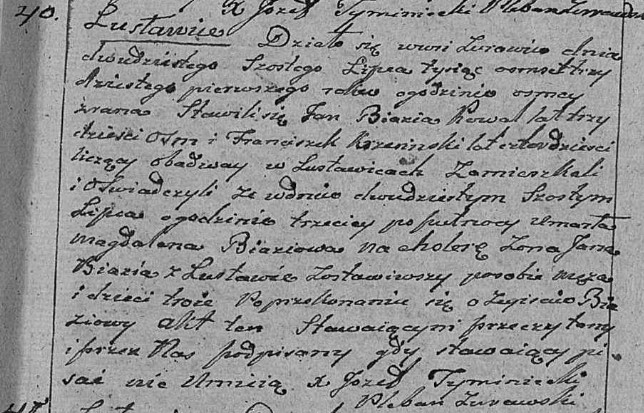 X Józef Tyminiecki Pleban Zurawski
40.
Lustawie Działo się w wsi Zurowie dnia
dwudziestego Szostego Lipca tysiąc osmset trzy
dziestego pierwszego roku ogodzinie osmey
zrana Stawili się Jan Biazia Kowal lat trzy
dzieści Osm i Franciszek lat czterdzieści
liczący obadway w Lustawicach Zamieszkali
i Oswiadczyli Ze wdniu dwudziestym Szostym
Lipca ogodzinie trzeciey popułnocy Umarła
Magdalena Biaziowa na cholerę Zona Jana
Biazia z Lustawic Zostawiwszy posobie męża
i dzieci troie Poprzekonaniu się oZeyściu Bia
ziowy akt ten Stawaiącym przeczytany
i przez Nas podpisany gdy stawaiący pi
sać nie Umieią X Józef Tyminiecki
Pleban Zurawski